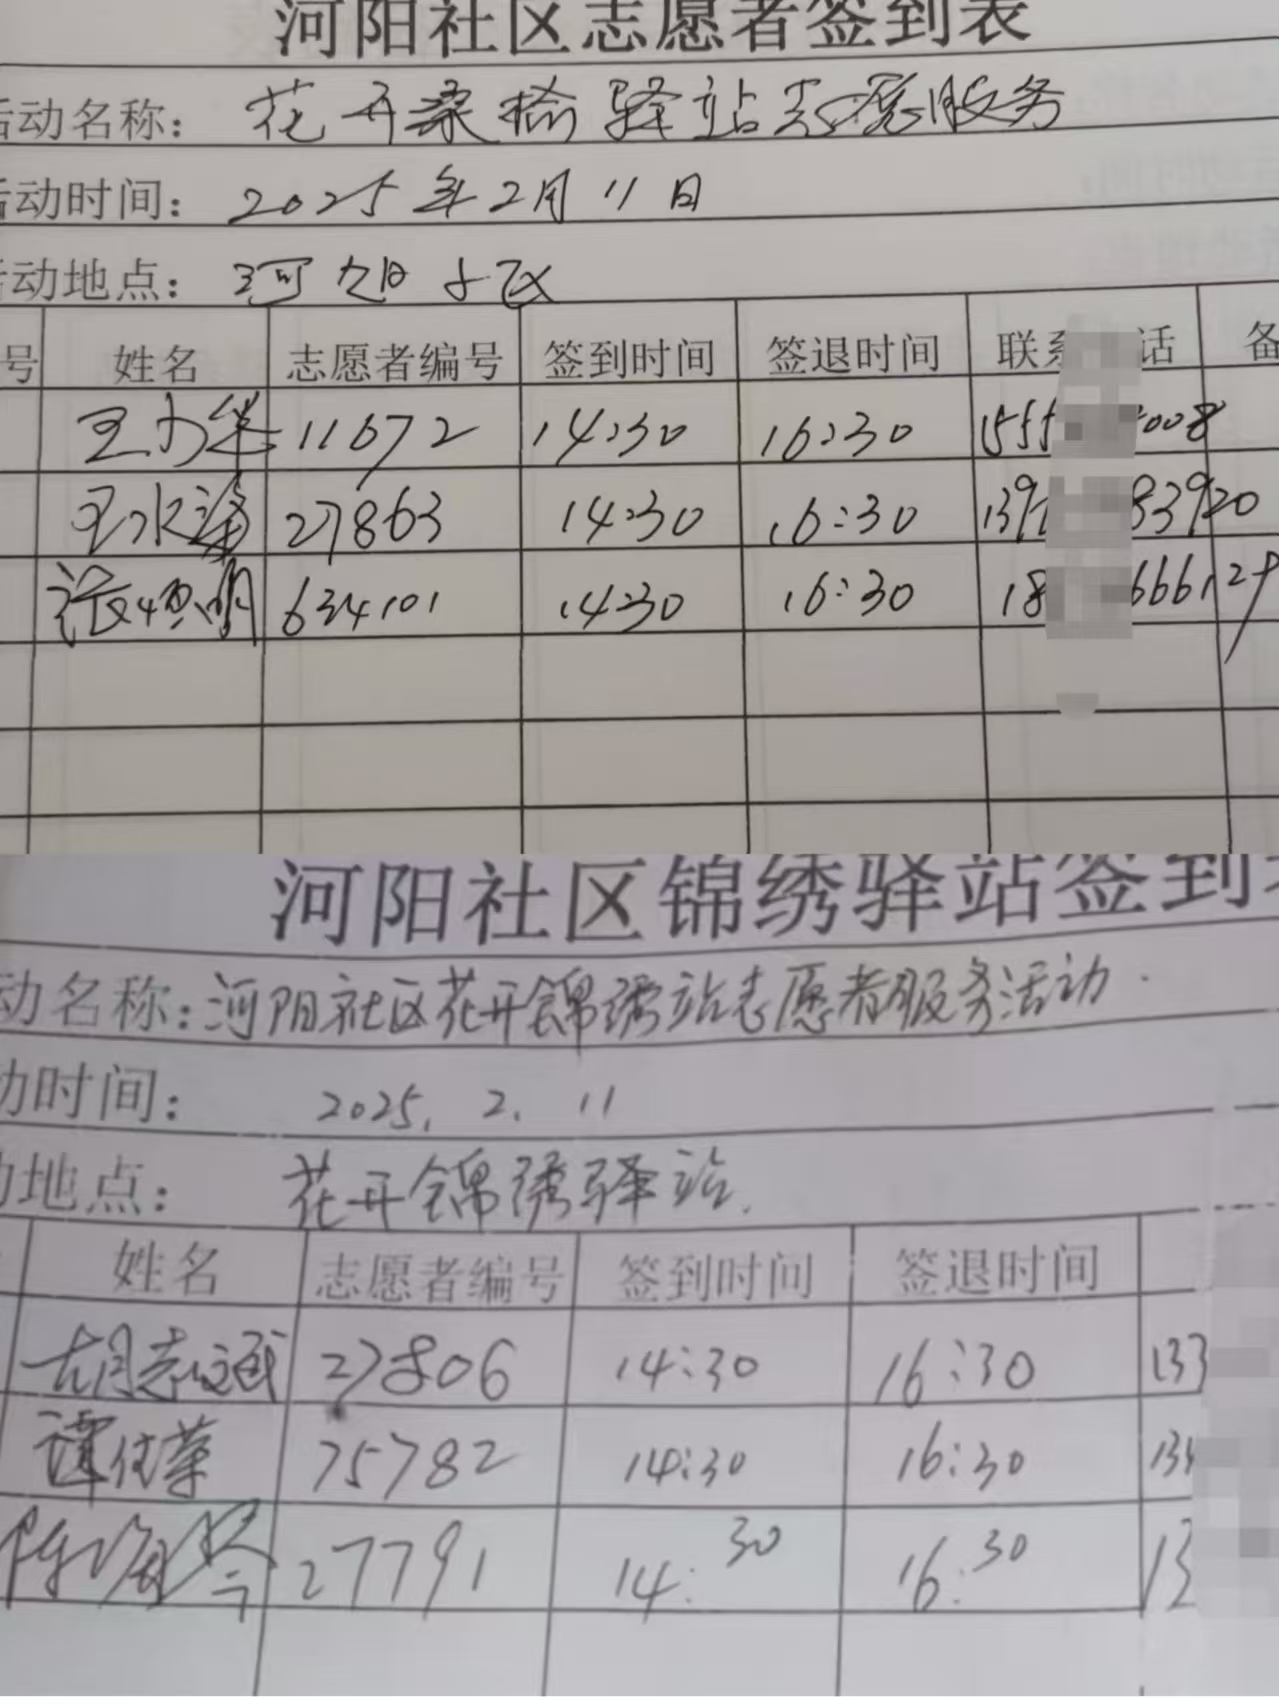 河阳社区志愿者签到表
活动名称：花开桑榆驿站志愿服务
活动时间：2025年2月11日
活动地点：河阳社区
号 姓名 志愿者编号 签到时间 签退时间 联系 话 备
王 11672 14:30 16:30 155 008
王水 27863 14:30 16:30 139 83920
张 明 634101 14:30 16:30 18 666129
河阳社区锦绣驿站签到表
动名称：河阳社区花开锦绣站志愿者服务活动.
动时间：2025.2.11
动地点：花开锦绣驿站.
姓名 志愿者编号 签到时间 签退时间
胡志斌 27806 14:30 16:30 133
谭 荣 75782 14:30 16:30 13
陈海 27791 14:30 16:30 13